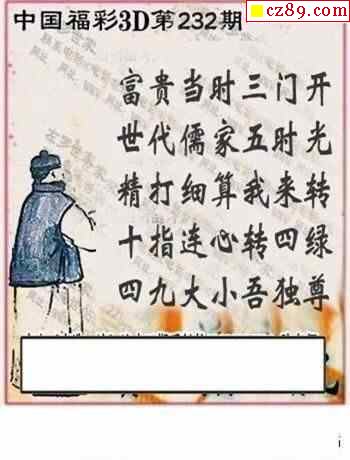 cz89.com
中国福彩3D第232期
富贵当时三门开
世代儒家五时光
精打细算我来转
十指连心转四绿
四九大小吾独尊